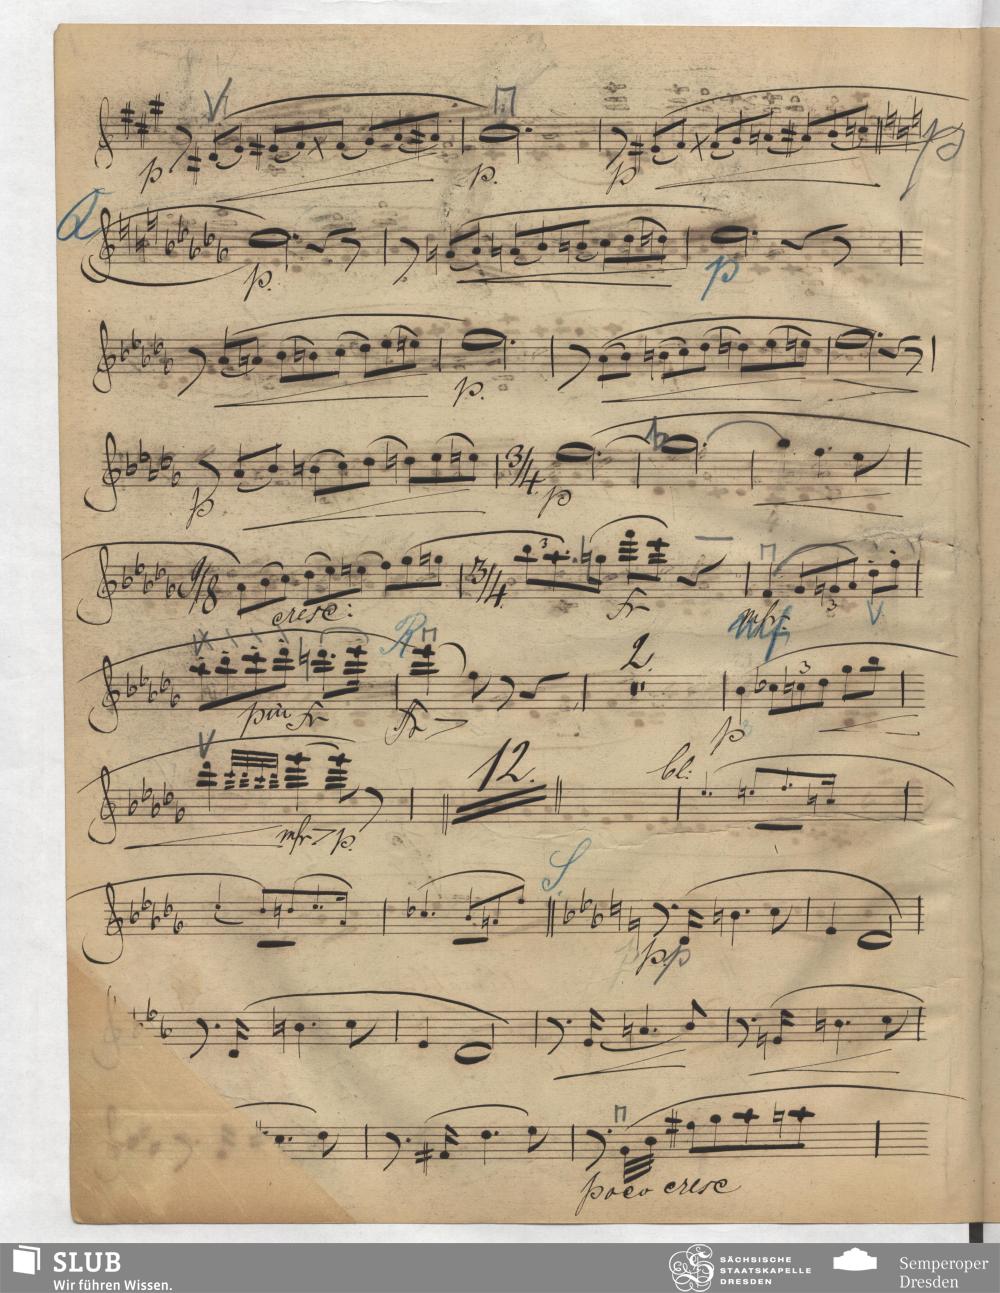 p p. p p
Q p. p
p.
p 3/4 p
9/8 cresc: 3/4 3 fr mfr. 3 mf
più fr R fr 2. p 3
mfr p. 12. bl:
S. ppp
poco cresc
SLUB
Wir führen Wissen.
SÄCHSISCHE
STAATSKAPELLE
DRESDEN
Semperoper
Dresden